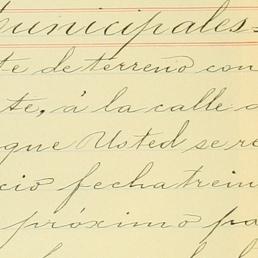 unicipales=
te de terreno con
te, á la calle d
que Usted se re
cio fecha trein
próximo pa